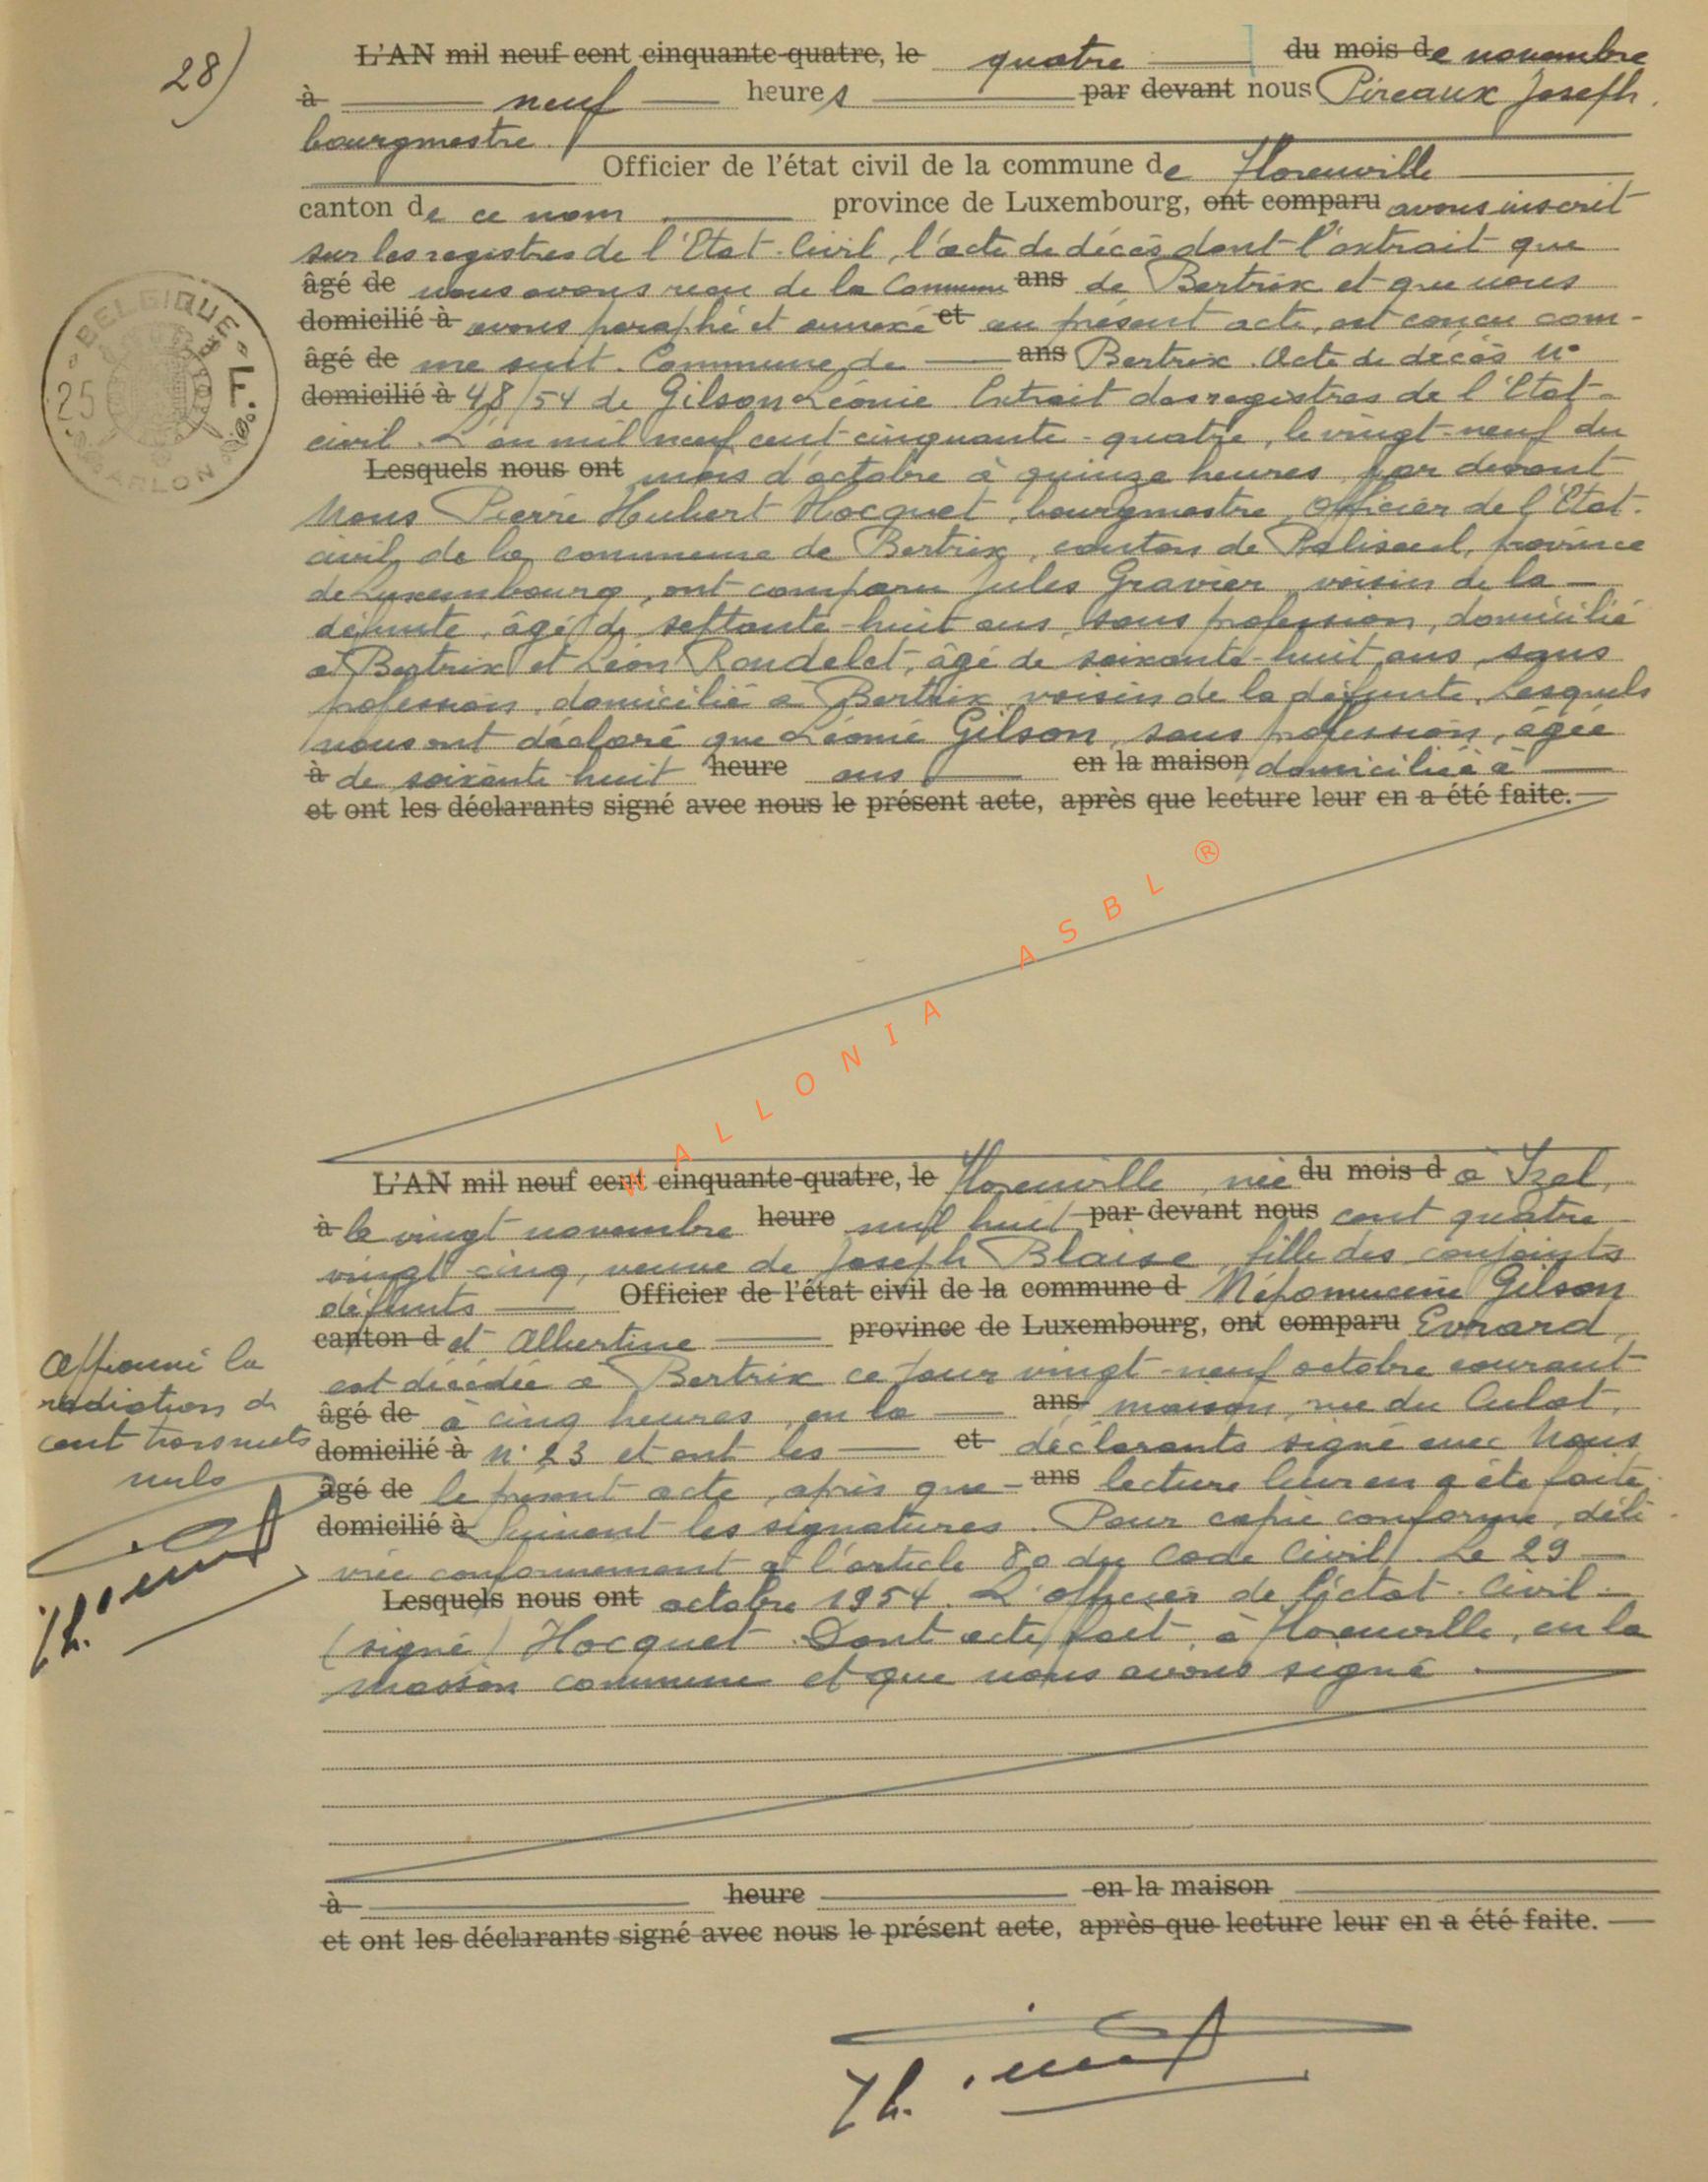 28)
L'AN mil neuf cent cinquante-quatre, le quatre du mois de novembre
à neuf heures par devant nous Pireaux Joseph,
bourgmestre
Officier de l'état civil de la commune de Florenville
canton de ce nom province de Luxembourg, ont comparu avons inscrit
sur les registres de l'Etat-Civil, l'acte de décès dont l'extrait que
âgé de nous avons reçu de la Commune ans de Bertrix et que nous
domicilié à avons paraphé et annexé et au présent acte, est conçu com-
âgé de me suit. Commune de ans Bertrix. Acte de décès n°
domicilié à 48/54 de Gilson Léonie. Extrait des registres de l'Etat-
civil. L'an mil neuf cent cinquante-quatre, le vingt-neuf du
Lesquels nous ont mois d'octobre à quinze heures par devant
Nous Pierre Hubert Hocquet, bourgmestre, Officier de l'Etat-
civil de la commune de Bertrix, canton de Paliseul, province
de Luxembourg, ont comparu Jules Gravier, voisin de la
défunte, âgé de septante-huit ans, sans profession, domicilié
à Bertrix et Léon Rondelet, âgé de soixante-huit ans, sans
profession, domicilié à Bertrix, voisin de la défunte. Lesquels
nous ont déclaré que Léonie Gilson, sans profession, âgée
à de soixante-huit heure ans en la maison domiciliée à
et ont les déclarants signé avec nous le présent acte, après que lecture leur en a été faite.
WALLONIA ASBL ®
L'AN mil neuf cent cinquante-quatre, le Florenville, née du mois d à Izel,
à le vingt novembre heure mil huit par devant nous cent quatre
vingt cinq, veuve de Joseph Blaise, fille des conjoints
défunts Officier de l'état civil de la commune d Népomucène Gilson
canton d et Albertine province de Luxembourg, ont comparu Evrard,
est décédée à Bertrix ce jour vingt-neuf octobre courant
âgé de à cinq heures, en la ans maison, rue du Culot,
domicilié à n° 23 et ont les et déclarants signé avec Nous
âgé de le présent acte, après que ans lecture leur en a été faite.
domicilié à Suivent les signatures. Pour copie conforme, déli-
vrée conformément à l'article 80 du Code Civil. Le 29
Lesquels nous ont octobre 1954. L'officier de l'état-Civil.
(signé) Hocquet. Dont acte, fait à Florenville, en la
maison commune et que nous avons signé.
à heure en la maison
et ont les déclarants signé avec nous le présent acte, après que lecture leur en a été faite.
la
radiation de
cent trois mots
nuls
BELGIQUE
25 F.
ARLON